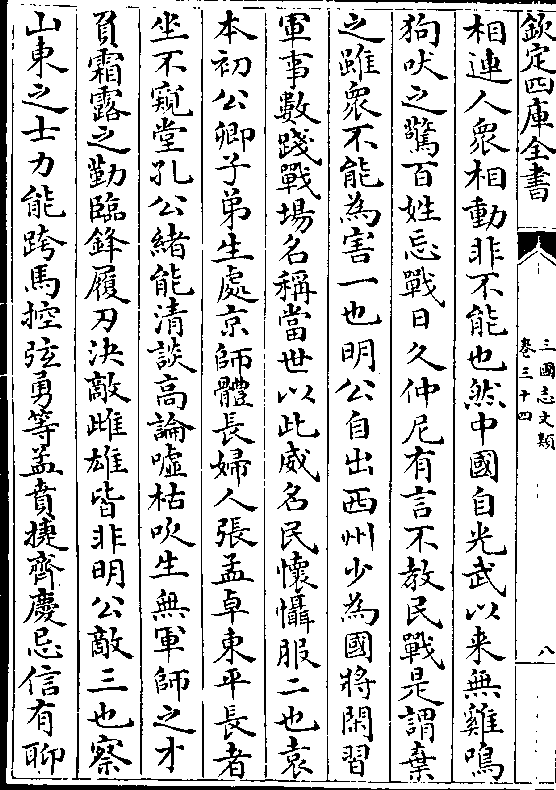 欽定四庫全書
三國志文類
卷三十四
八
相連人衆相動非不能也然中國自光武以来無雞鳴
狗吠之驚百姓忘戰日久仲尼有言不教民戰是謂棄
之雖衆不能為害一也明公自出西州少為國將閑習
軍事數踐戰場名稱當世以此威名民懷懾服二也袁
本初公卿子弟生處京師體長婦人張孟卓東平長者
坐不窺堂孔公緒能清談高論嘘枯吹生無軍師之才
負霜露之勤臨鋒履刃決敵雌雄皆非明公敵三也察
山東之士力能跨馬控弦勇等孟賁捷齊慶忌信有聊